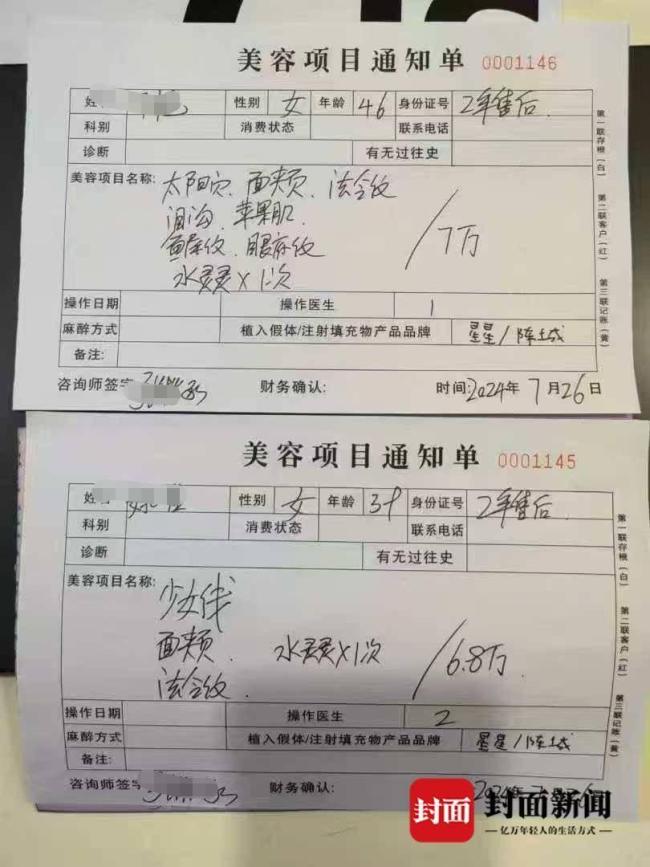 美容项目通知单 0001146
姓 性别 女 年龄 46 身份证号 2年售后
科别 消费状态 联系电话
诊断 有无过往史
美容项目名称: 太阳穴、面颊、法令纹
泪沟、苹果肌、
鱼尾纹、眼底纹 /7万
水灵灵×1次
操作日期 操作医生 1
麻醉方式 植入假体/注射填充物产品品牌 星星/陈土成
备注:
咨询师签字 财务确认: 时间:2024年7月26日
第一联存根(白)
第二联客户(红)
第三联记账(黄)
美容项目通知单 0001145
姓 性别 女 年龄 身份证号 2年售后
科别 消费状态 联系电话
诊断 有无过往史
美容项目名称:
少女线
面颊、 水灵灵×1次 /6.8万
法令纹、
操作日期 操作医生 2
麻醉方式 植入假体/注射填充物产品品牌 星星/陈土成
备注:
咨询师签字 财务确认:
第一联存根(白)
第二联客户(红)
第三联记账(黄)
封面 封面新闻
亿万年轻人的生活方式